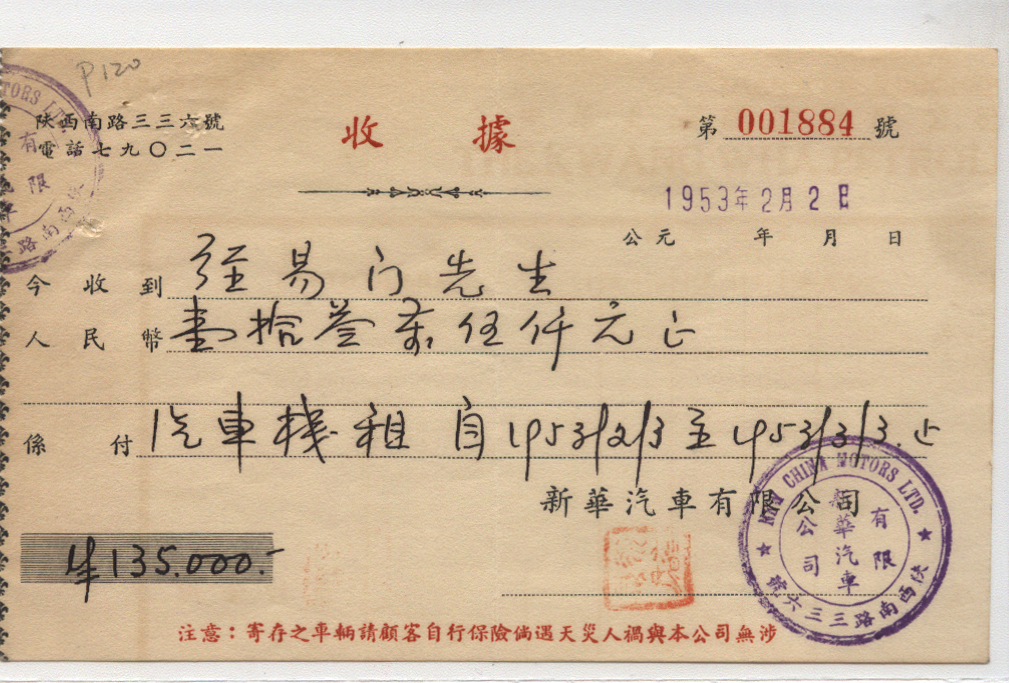 P120
陝西南路三三六號
電話七九〇二一
收據
第 001884 號
1953年2月2日
公元 年 月 日
今收到 經易门先生
人民幣 壹拾叁萬伍仟元正
係付 汽車棧租 自1953/2/3至1953/3/3.止
新華汽車有限公司
¥135.000.-
NEW CHINA MOTORS LTD.
新華汽車
有限
公司
陝西南路三三六號
TORS LT
有
限
路南西
注意：寄存之車輛請顧客自行保險倘遇天災人禍與本公司無涉